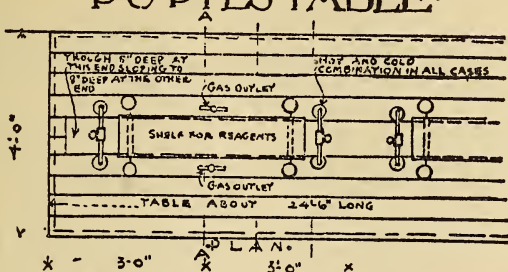 PUPILS TABLE
A
TROUGH 6" DEEP AT
THIS END SLOPING TO
8" DEEP AT THE OTHER
END
HOT AND COLD
COMBINATION IN ALL CASES
GAS OUTLET
4'-0"
SHELF FOR REAGENTS
GAS OUTLET
TABLE ABOUT 24'-6" LONG
PLAN.
A
3'-0"
3'-0"